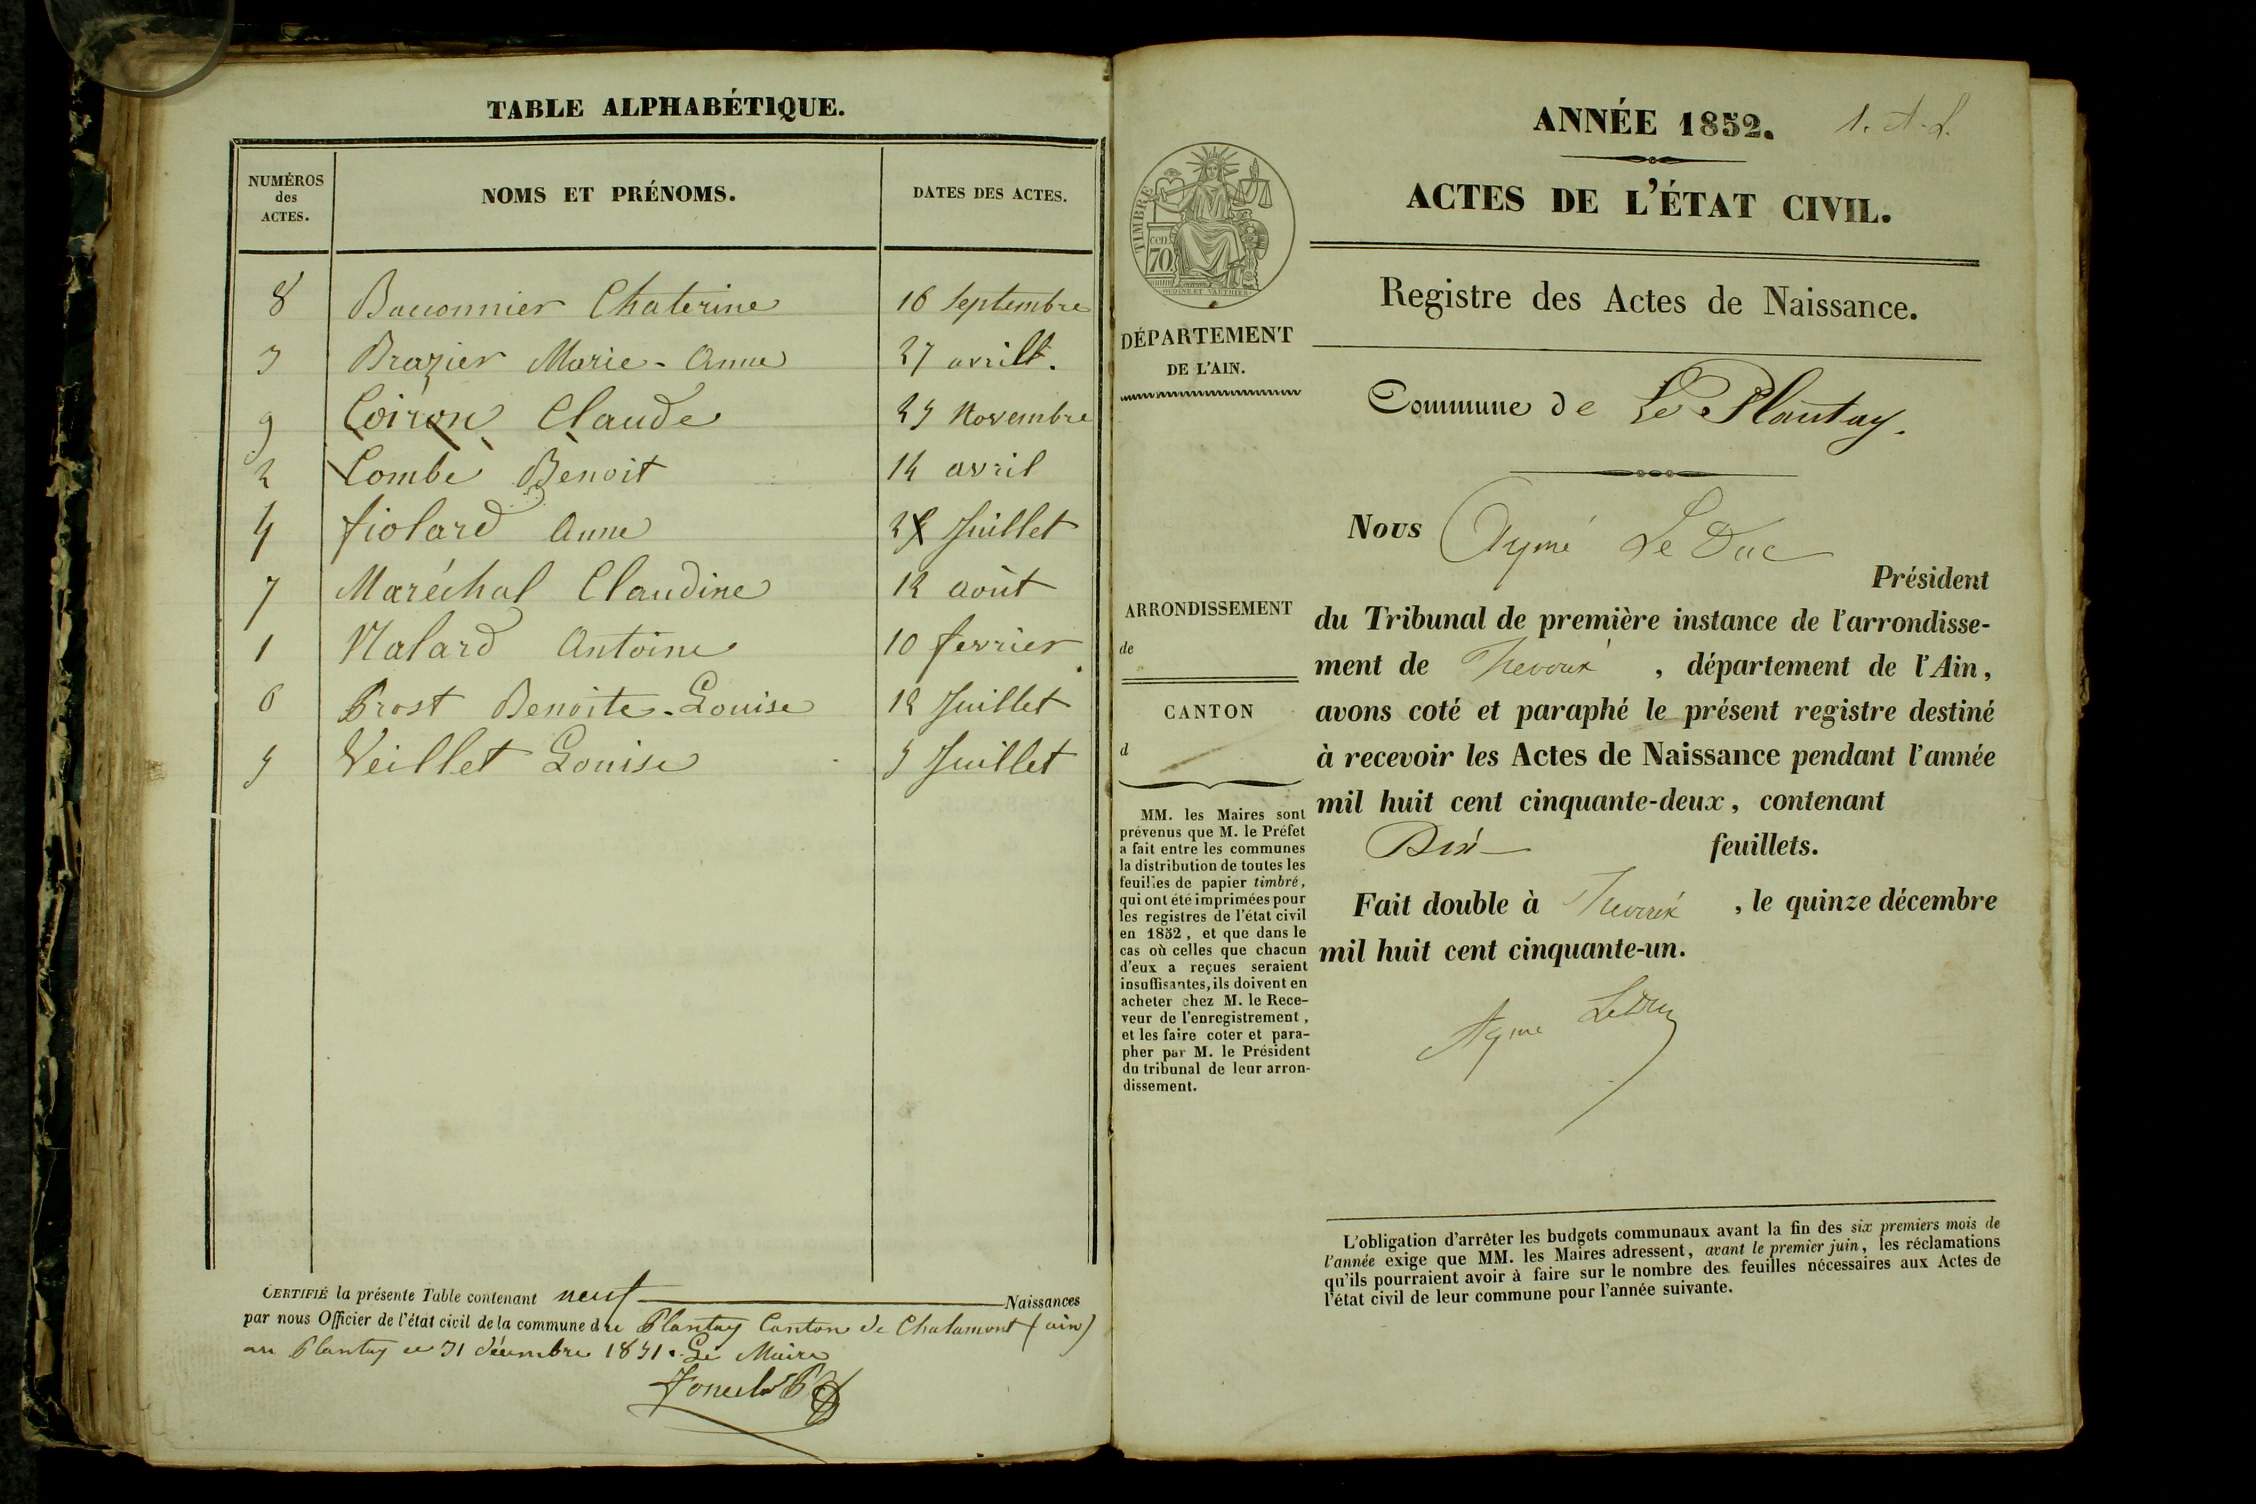 TABLE ALPHABÉTIQUE.
NUMÉROS des ACTES. NOMS ET PRÉNOMS. DATES DES ACTES.
8 Bouonnier Chaterine 16 Septembre
3 Brazier Marie-Anne 27 avril.
9 Coiron Claude 25 Novembre
2 Combe Benoit 14 avril
4 fiolard Anne Juillet
7 Maréchal Claudine 12 août
1 Nalard Antoine 10 fevrier
6 Prost Benoite-Louise 12 Juillet
5 Veillet Louise 5 Juillet
CERTIFIÉ la présente Table contenant neuf Naissances
par nous Officier de l'état civil de la commune de Plantay Canton de Chalamont (ain)
au Plantay ce 31 décembre 1851. Le Maire
ANNÉE 1852. 1. A. L.
ACTES DE L'ÉTAT CIVIL.
Registre des Actes de Naissance.
Commune de Le Plantay.
TIMBRE
cen.
70
DÉPARTEMENT
DE L'AIN.
ARRONDISSEMENT
de
CANTON
d
MM. les Maires sont
prévenus que M. le Préfet
a fait entre les communes
la distribution de toutes les
feuilles de papier timbré,
qui ont été imprimées pour
les registres de l'état civil
en 1852, et que dans le
cas où celles que chacun
d'eux a reçues seraient
insuffisantes, ils doivent en
acheter chez M. le Rece-
veur de l'enregistrement,
et les faire coter et para-
pher par M. le Président
du tribunal de leur arron-
dissement.
Nous Aymé Le Duc
Président
du Tribunal de première instance de l'arrondisse-
ment de Trevoux, département de l'Ain,
avons coté et paraphé le présent registre destiné
à recevoir les Actes de Naissance pendant l'année
mil huit cent cinquante-deux, contenant
Dix feuillets.
Fait double à Trevoux, le quinze décembre
mil huit cent cinquante-un.
Ayme LeDuc
L'obligation d'arrêter les budgets communaux avant la fin des six premiers mois de
l'année exige que MM. les Maires adressent, avant le premier juin, les réclamations
qu'ils pourraient avoir à faire sur le nombre des feuilles nécessaires aux Actes de
l'état civil de leur commune pour l'année suivante.